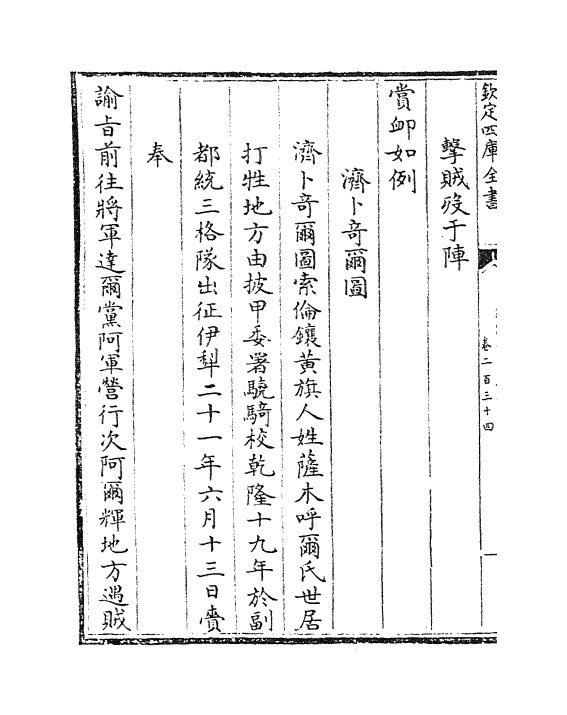 欽定四庫全書
卷二百三十四
擊賊歿于陣
賞卹如例
濟卜竒爾圖
濟卜竒爾圖索倫鑲黃旗人姓薩木呼爾氏世居
打牲地方由披甲委署驍騎校乾隆十九年於副
都統三格隊出征伊犁二十一年六月十三日賫
奉
諭旨前往將軍達爾黨阿軍營行次阿爾輝地方遇賊